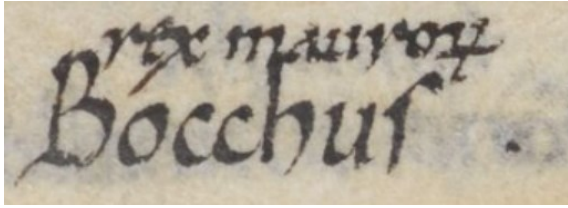 rex mauroꝝ
Bocchuſ .